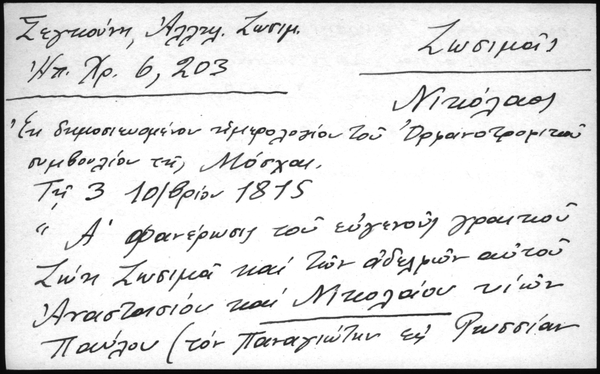 Σεγκούνη, Ἀλληλ. Ζωσιμ.
Ἠπ. Χρ. 6, 203
Ζωσιμᾶς
Νικόλαος
Ἐκ δημοσιευομένου ἡμερολογίου τοῦ Ὀρφανοτροφικοῦ
συμβουλίου τῆς Μόσχας.
Τῇ 3 10/βρίου 1815
" Α' φανέρωσις τοῦ εὐγενοῦς γραικοῦ
Ζώη Ζωσιμᾶ καὶ τῶν ἀδελφῶν αὐτοῦ
Ἀναστασίου καὶ Νικολάου υἱῶν
Παύλου (τὸν Παναγιώτην εἰς Ρωσσίαν